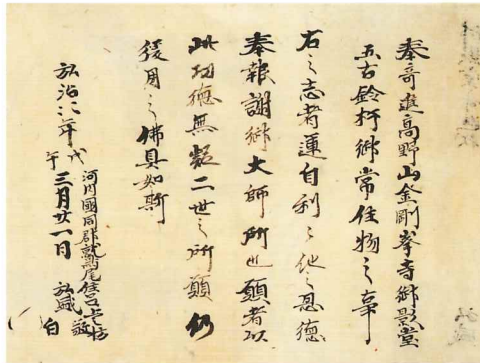 奉寄進高野山金剛峯寺御影堂
五古鈴杵御常住物之事
右之志者運自利々他之恩德
奉報謝御大師所也願者以
此功德無疑二世之所願仍
後用之佛具如斯
弘治二二年戊午三月廿一日
河川國同郡鷲尾住呂
弘盛敬白